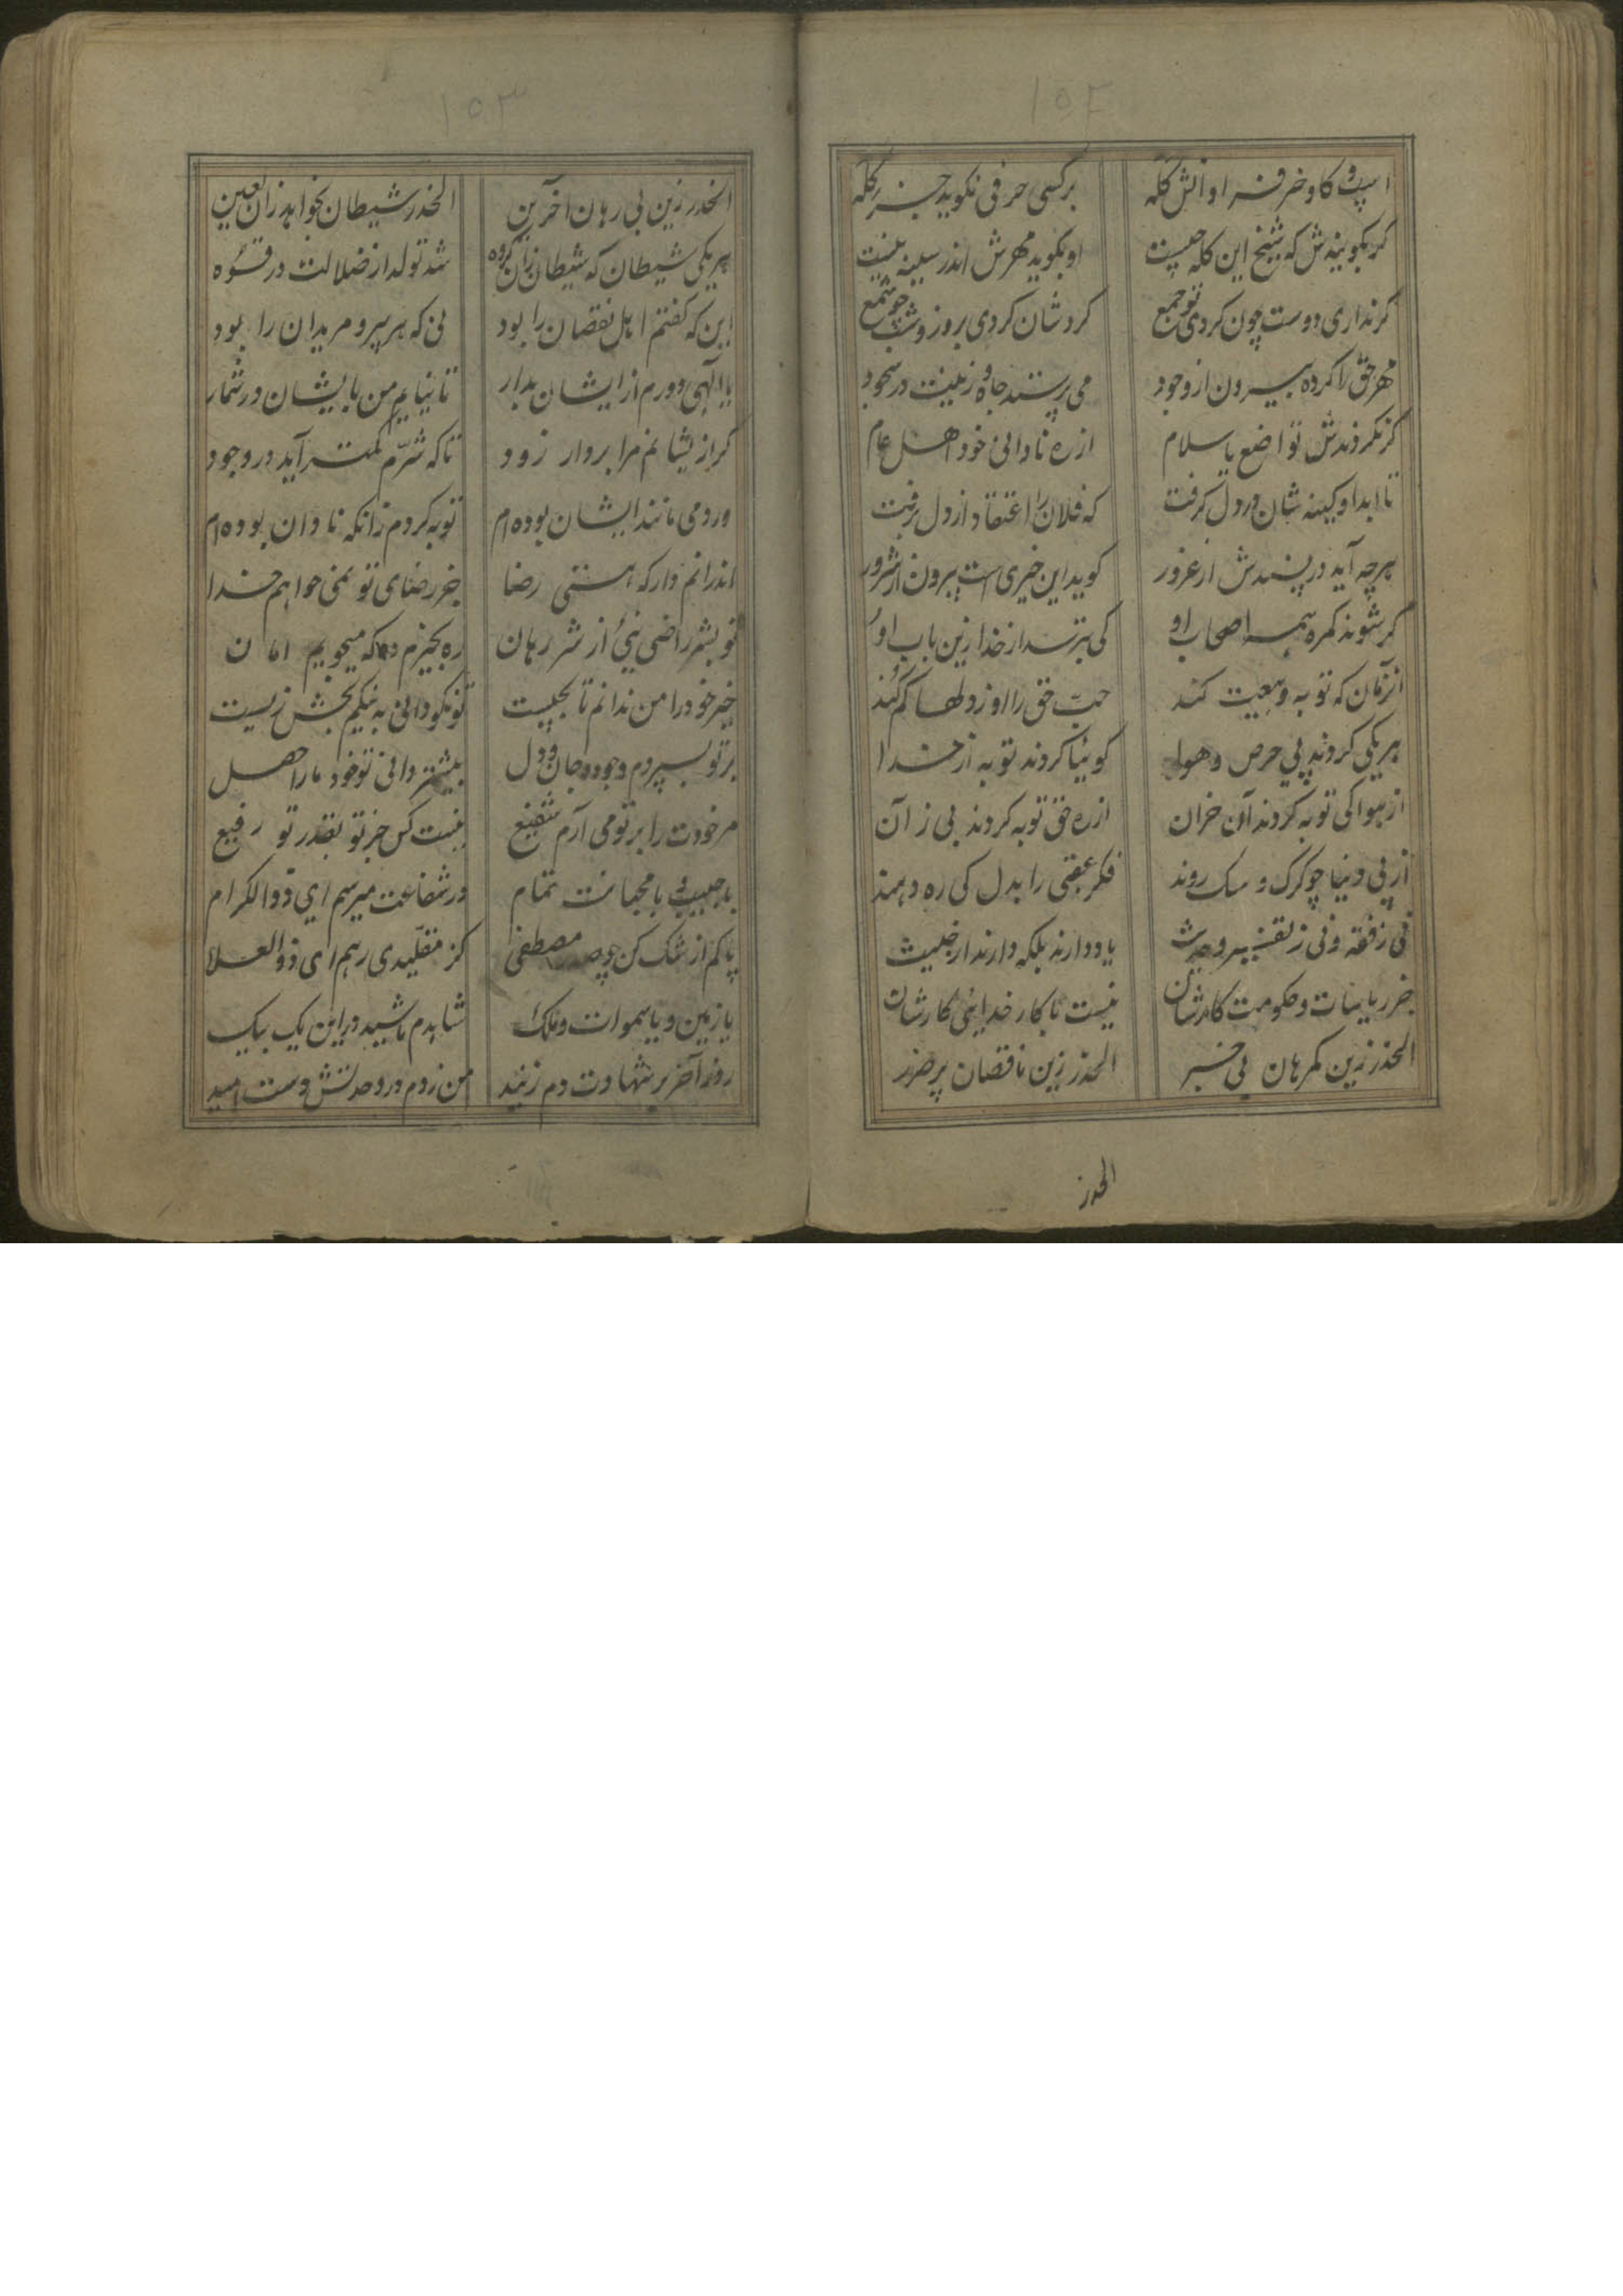 ۱۵۴
اسپ و کاو و خر فرا او انش کله    بر کسی حرفی نکوید جز کله
کر بکویندش که شیخ این کله چیست    او بکوید مهرش اندر سینه نیست
کر نداری دوست چون کردی تو جمع    کردشان کردی بروز و شب چو شمع
مهر حق را کرده بیرون از وجود    می پرستند جاه و زینت در سجود
کر نکردندش تواضع یا سلام    از ره نادانی خود اهل عام
تا ابد او کینه شان در دل کرفت    که فلان را اعتقاد از دل برفت
هرچه آید در پسندش از غرور    کوید این خیری است بیرون از شرور
کر شوند کمره همه اصحاب او    کی بترسد از خدا زین باب او
آنزمان که توبه و بیعت کند    حبّ حق را او ز دلها کم کُند
هریکی کردند پی حرص و هوا    کوئیا کردند توبه از خدا
از هوا کی توبه کردند آن خران    از ره حق توبه کردند بی ز آن
از پی دنیا چو کرک و سک روند    فکر عقبی را بدل کی ره دهند
نی ز فقه و نی ز تفسیر و حدیث    یاد دارند بلکه دارند از خبیث
جز ریاسات و حکومت کارشان    نیست با کار خدایئی کارشان
الحذر زین کمرهان بی خبر    الحذر زین ناقصان پر ضرر
الحذر
۱۵۳
الحذر زین بی رهان آخرین    الحذر شیطان بخواهد زان لعین
هریکی شیطان که شیطان زان کروه    شد تولد از ضلالت در قسوه
این که کفتم اهل نقصان را بود    نی که هر پیر و مریدان را بود
یا الهی دورم از ایشان بدار    تا نیایم من بایشان در شمار
کر از یشانم مرا بردار زود    تا که شرّم کمتر آید در وجود
ور دمی مانند ایشان بوده ام    توبه کردم زانکه نادان بوده ام
اندرانم دار که هستی رضا    جز رضای تو نمی خواهم خدا
تو بشر راضی نیی از شر رهان    ره بخیرم ده که میجویم امان
خیر خود را من ندانم تا بچیست    تو نکو دانی به نیکم بخش زیست
بر تو بسپردم وجود و جان و دل    بیشتر دانی تو خود مارا ز اصل
مر خودت را بر تو می آرم شفیع    نیست کس جز تو بقدر تو رفیع
با حبیب و با محبانت تمام    در شفاعت میرسم ای ذوالکرام
پاکم از شک کن چو صدر مصطفی    کز مقلّیدی رهم ای ذوالعلا
یا زمین و یا سموات و ملک    شاهدم باشید در این یک بیک
روز آخر بر شهادت دم زنید    من زدم در وحدتش دست امید